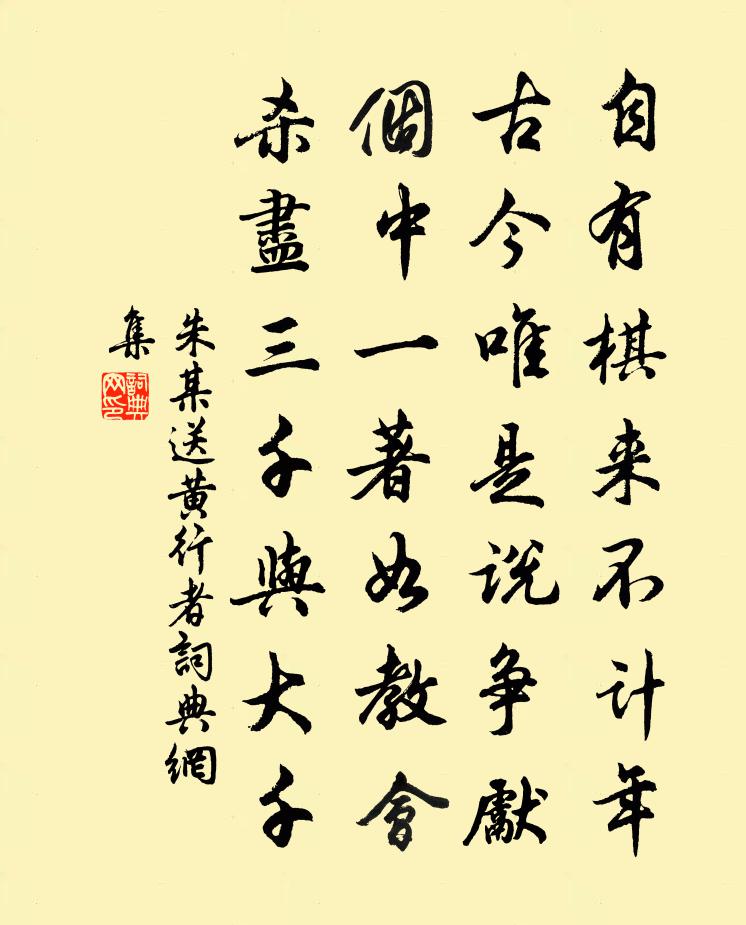 自有棋来不计年
古今唯是说争獻
個中一著如教會
杀盡三千與大千
朱某送黄行者詞典網
集
詞典
网印